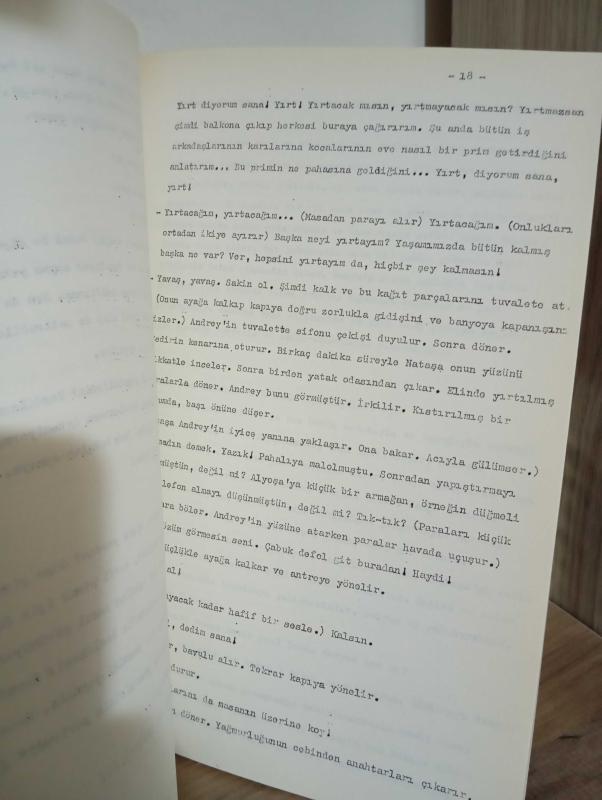 - 18 -
Yırt diyorum sana! Yırt! Yırtacak mısın, yırtmayacak mısın? Yırtmazsan
şimdi balkona çıkıp herkesi buraya çağırırım. Şu anda bütün iş
arkadaşlarının karılarına kocalarının eve nasıl bir prim getirdiğini
anlatırım... Bu primin ne pahasına geldiğini... Yırt, diyorum sana,
yırt!
- Yırtacağım, yırtacağım... (Masadan parayı alır) Yırtacağım. (Onlukları
ortadan ikiye ayırır) Başka neyi yırtayım? Yaşamımızda bütün kalmış
başka ne var? Ver, hepsini yırtayım da, hiçbir şey kalmasın!
- Yavaş, yavaş. Sakin ol. Şimdi kalk ve bu kağıt parçalarını tuvalete at.
(Onun ayağa kalkıp kapıya doğru zorlukla gidişini ve banyoya kapanışını
izler.) Andrey'in tuvalette sifonu çekişi duyulur. Sonra döner.
edirin kenarına oturur. Birkaç dakika süreyle Nataşa onun yüzünü
ikkatle inceler. Sonra birden yatak odasından çıkar. Elinde yırtılmış
ralarla döner. Andrey bunu görmüştür. İrkilir. Kıstırılmış bir
umda, başı önüne düşer.
aşa Andrey'in iyice yanına yaklaşır. Ona bakar. Acıyla gülümser.)
madın demek. Yazık! Pahalıya malolmuştu. Sonradan yapıştırmayı
müştün, değil mi? Alyoşa'ya küçük bir armağan, örneğin düğmeli
lefon almayı düşünmüştün, değil mi? Tık-tık? (Paraları küçük
ara böler. Andrey'in yüzüne atarken paralar havada uçuşur.)
özüm görmesin seni. Çabuk defol git buradan! Haydi!
üçlükle ayağa kalkar ve antreye yönelir.
al!
ayacak kadar hafif bir sesle.) Kalsın.
, dedim sana!
r, bavulu alır. Tekrar kapıya yönelir.
durur.
larını da masanın üzerine koy!
ı döner. Yağmurluğunun cebinden anahtarları çıkarır.